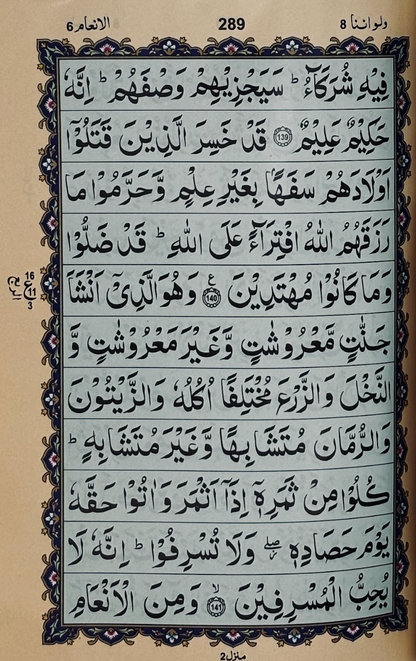 ولواننا ٨
289
الانعام ٦
فِيْهِ شُرَكَآءُ ؕ سَيَجْزِيْهِمْ وَصْفَهُمْ ؕ اِنَّهٗ
حَكِيْمٌ عَلِيْمٌ ﴿139﴾ قَدْ خَسِرَ الَّذِيْنَ قَتَلُوْۤا
اَوْلَادَهُمْ سَفَهًۢا بِغَيْرِ عِلْمٍ وَّحَرَّمُوْا مَا
رَزَقَهُمُ اللّٰهُ افْتِرَآءً عَلَى اللّٰهِ ؕ قَدْ ضَلُّوْا
وَمَا كَانُوْا مُهْتَدِيْنَ ﴿140﴾ ع وَهُوَ الَّذِيْۤ اَنْشَاَ
16
ع 11
3
الربع
جَنّٰتٍ مَّعْرُوْشٰتٍ وَّغَيْرَ مَعْرُوْشٰتٍ وَّ
النَّخْلَ وَالزَّرْعَ مُخْتَلِفًا اُكُلُهٗ وَالزَّيْتُوْنَ
وَالرُّمَّانَ مُتَشَابِهًا وَّغَيْرَ مُتَشَابِهٍ ؕ
كُلُوْا مِنْ ثَمَرِهٖۤ اِذَاۤ اَثْمَرَ وَاٰتُوْا حَقَّهٗ
يَوْمَ حَصَادِهٖ ۖ وَلَا تُسْرِفُوْا ؕ اِنَّهٗ لَا
يُحِبُّ الْمُسْرِفِيْنَ ﴿141﴾ ۙ وَمِنَ الْاَنْعَامِ
منزل٢